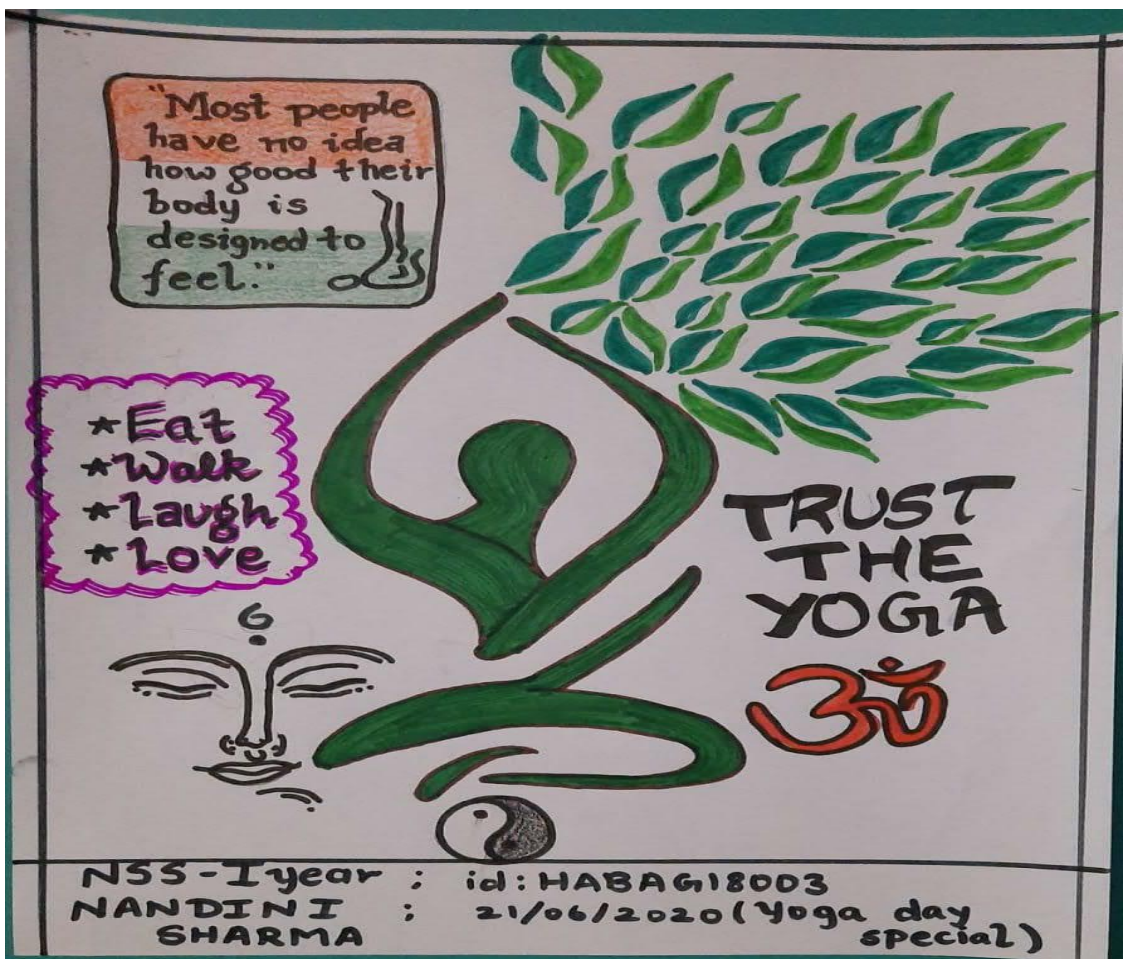 "Most people
have no idea
how good their
body is
designed to
feel."
*Eat
*Walk
*Laugh
*Love
TRUST
THE
YOGA
ॐ
NSS-I year : id: HABAG18003
NANDINI : 21/06/2020 (Yoga day
SHARMA special)